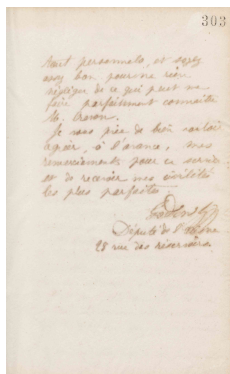 303
tout personnels, et soyez
assez bon pour ne rien
négliger de ce qui peut me
faire parfaitement connaître
M.
Je vous prie de bien vouloir
agréer, à l'avance, mes
remerciements pour ce service
et de recevoir mes civilités
les plus parfaites.
Député de l'
25 rue des réservoirs